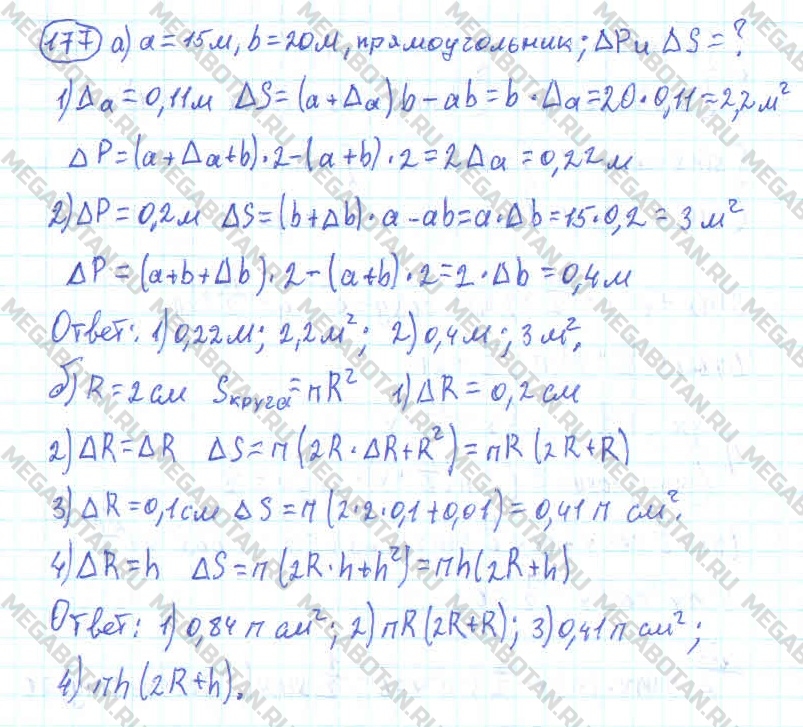 177 а) a = 15м, b = 20м, прямоугольник; ΔP и ΔS = ?
1) Δa = 0,11м ΔS = (a + Δa) b - ab = b · Δa = 20 · 0,11 = 2,2 м²
ΔP = (a + Δa + b) · 2 - (a + b) · 2 = 2Δa = 0,22 м
2) ΔP = 0,2м ΔS = (b + Δb) · a - ab = a · Δb = 15 · 0,2 = 3 м²
ΔP = (a + b + Δb) · 2 - (a + b) · 2 = 2 · Δb = 0,4 м
Ответ: 1) 0,22 м; 2,2 м²; 2) 0,4 м; 3 м².
б) R = 2 см Sкруга = πR² 1) ΔR = 0,2 см
2) ΔR = ΔR ΔS = π (2R · ΔR + R²) = πR (2R + R)
3) ΔR = 0,1 см ΔS = π (2 · 2 · 0,1 + 0,01) = 0,41 π см².
4) ΔR = h ΔS = π (2R · h + h²) = πh (2R + h)
Ответ: 1) 0,84 π см²; 2) πR (2R + R); 3) 0,41 π см²;
4) πh (2R + h).
MEGABOTAN.RU